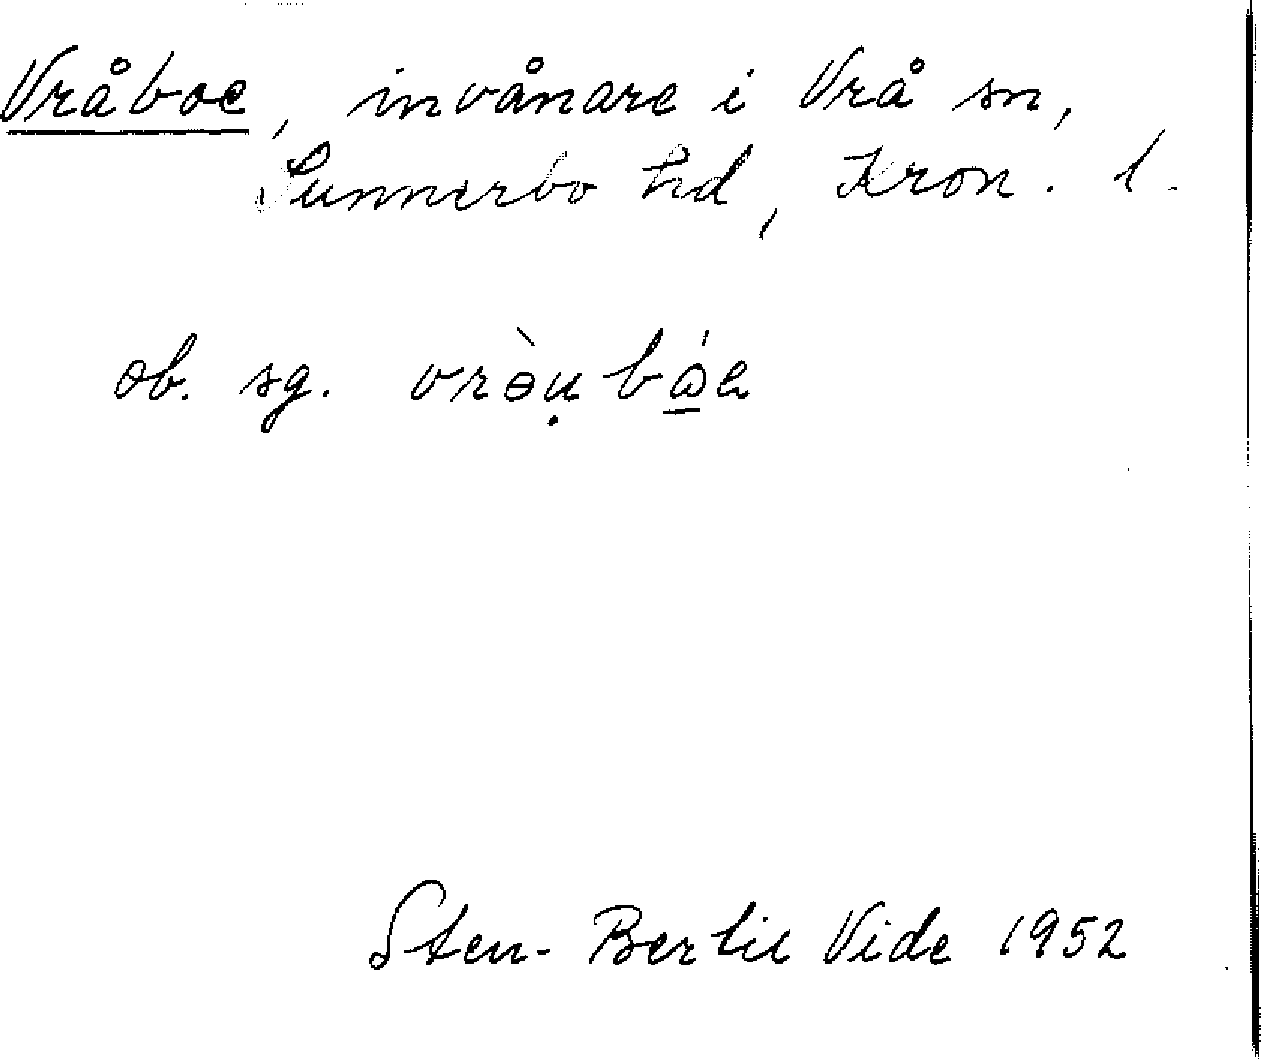 Vråboe, invånare i Vrå sn,
Sunnerbo hd, Kron. l.
ob. sg. vrə̀u̩bó̱e
Sten-Bertil Vide 1952